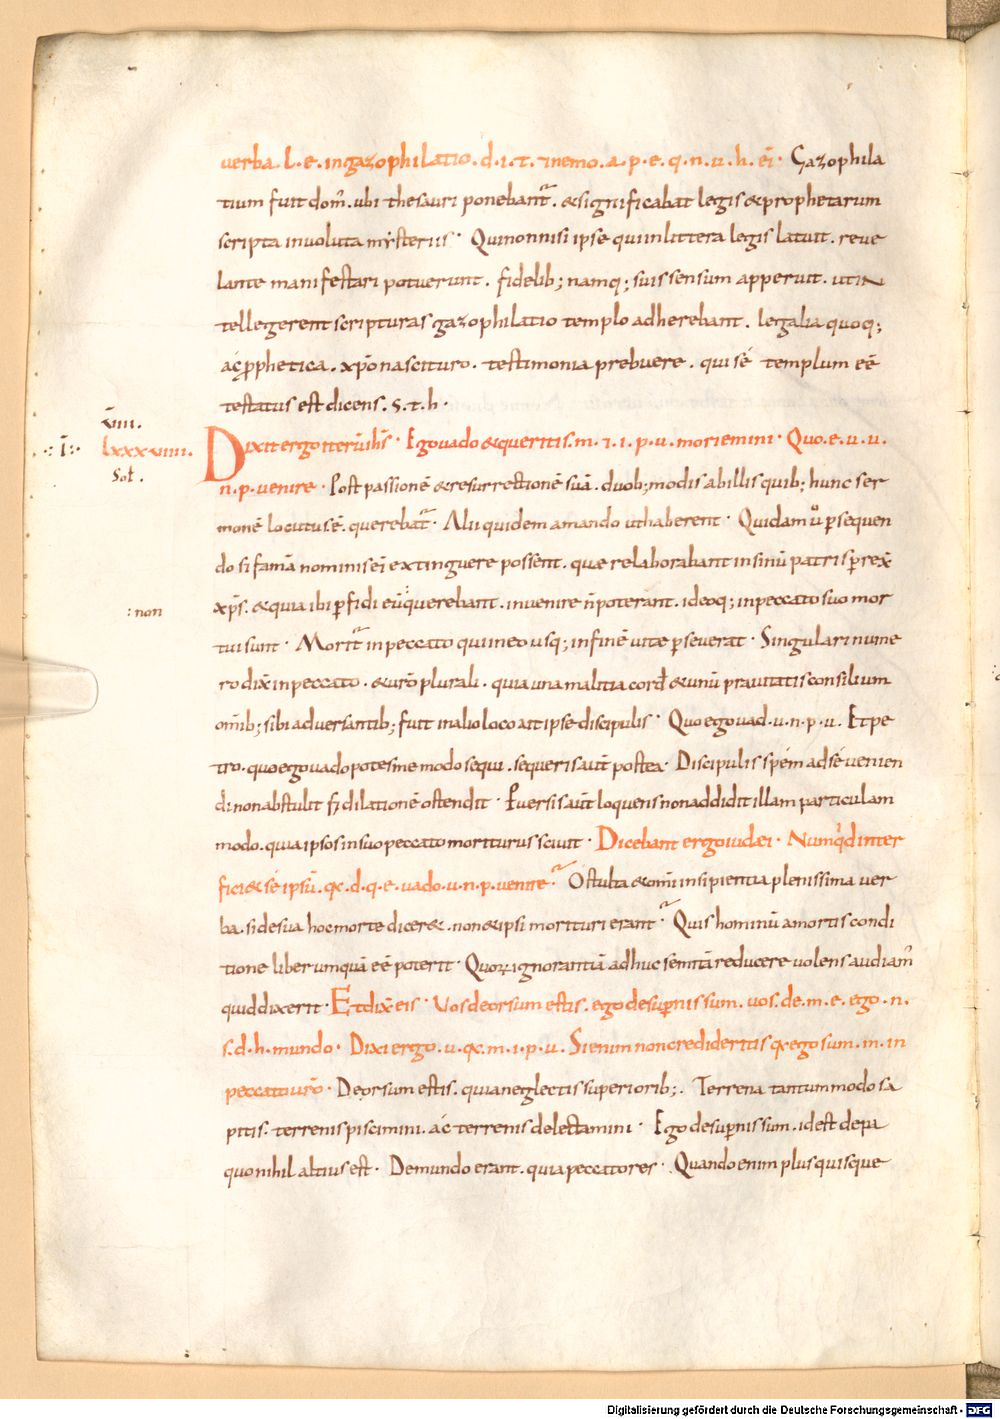 verba. l. e. in gazophilatio. d. i. t. & nemo. a. p. e. q. n. u. h. ei. Gazophila
tium fuit dom̄. ubi thesauri ponebant᷑. & significabat legis & prophetarum
scripta involuta mysteriis. Qui non nisi ipse qui in littera legis latuit. reve
lante manifestari potuerunt. fidelib; namq; suis sensum apperuit. ut in
tellegerent scripturas gazophilatio templo adherebant. legalia quoq;
ac pphetica. xp̄o nascituro. testimonia prebuere. qui sē templum eē
testatus est dicens. S. t. h.
v̄iii.
·:· ī:· lxxxviiii. Dixit ergo iterū ih̄s. Ego vado & queritis. m. & i. p. u. moriemini. Quo. e. u. u.
Sol.
n. p. venire. Post passionē & resurrectionē suā. duob; modis ab illis quib; hunc ser
monē locutus ē. querebat᷑. Alii quidem amando ut haberent. Quidam ů psequen
do si famā nominis ei extinguere possent. que relaborabant in sinū patris prex̄
:non
xp̄s. & quia ibi pfidi eū querebant. invenire n̄ poterant. ideoq; in peccato suo mor
tui sunt. Morit᷑ in peccato qui in eo usq; in finē vite pseverat. Singulari nume
ro dix̄ in peccato. & ur̄o plurali. quia una malitia cord & unū pravitatis consilium
om̄ib; sibi adversantib; fuit in alio loco ait ipse discipulis. Quo ego vad. u. n. p. u. Et pe
tro. quo ego vado potes me modo sequi. sequeris aut̄ postea. Discipulis spem ad sē venien
di non abstulit s; dilationē ostendit. Pversis aut̄ loquens non addidit illam particulam
modo. quia ipsos in suo peccato morituru s scivit. Dicebant ergo iudæi. Numq̇d inter
fici& sē ipsū. qc. d. q. e. vado. u. n. p. venire. O stulta & om̄i insipientia plenissima ver
ba. si de sua hoc morte dicer&. non & ipsi morituri erant. Quis hominū a mortis condi
tione liber umquā eē poterit. Quoꝝ ignorantiā adhuc semitā reducere volens audiam᷒
quid dixerit. Et dix̄ eis. Vos deorsum estis. ego desupnis sum. vos. de. m. e. ego. n.
s. d. h. mundo. Dixi ergo. u. qc. m. i. p. u. Si enim non credideritis qc ego sum. m. in
peccato ur̄o. Deorsum estis. quia neglectis superiorib;. Terrena tantummodo sa
pitis. terrenis piscimini. ac terrenis delectamini. Ego desupnis sum. id est de pa
quo nihil altius est. De mundo erant. quia peccatores. Quando enim plus quisque
Digitalisierung gefördert durch die Deutsche Forschungsgemeinschaft - DFG